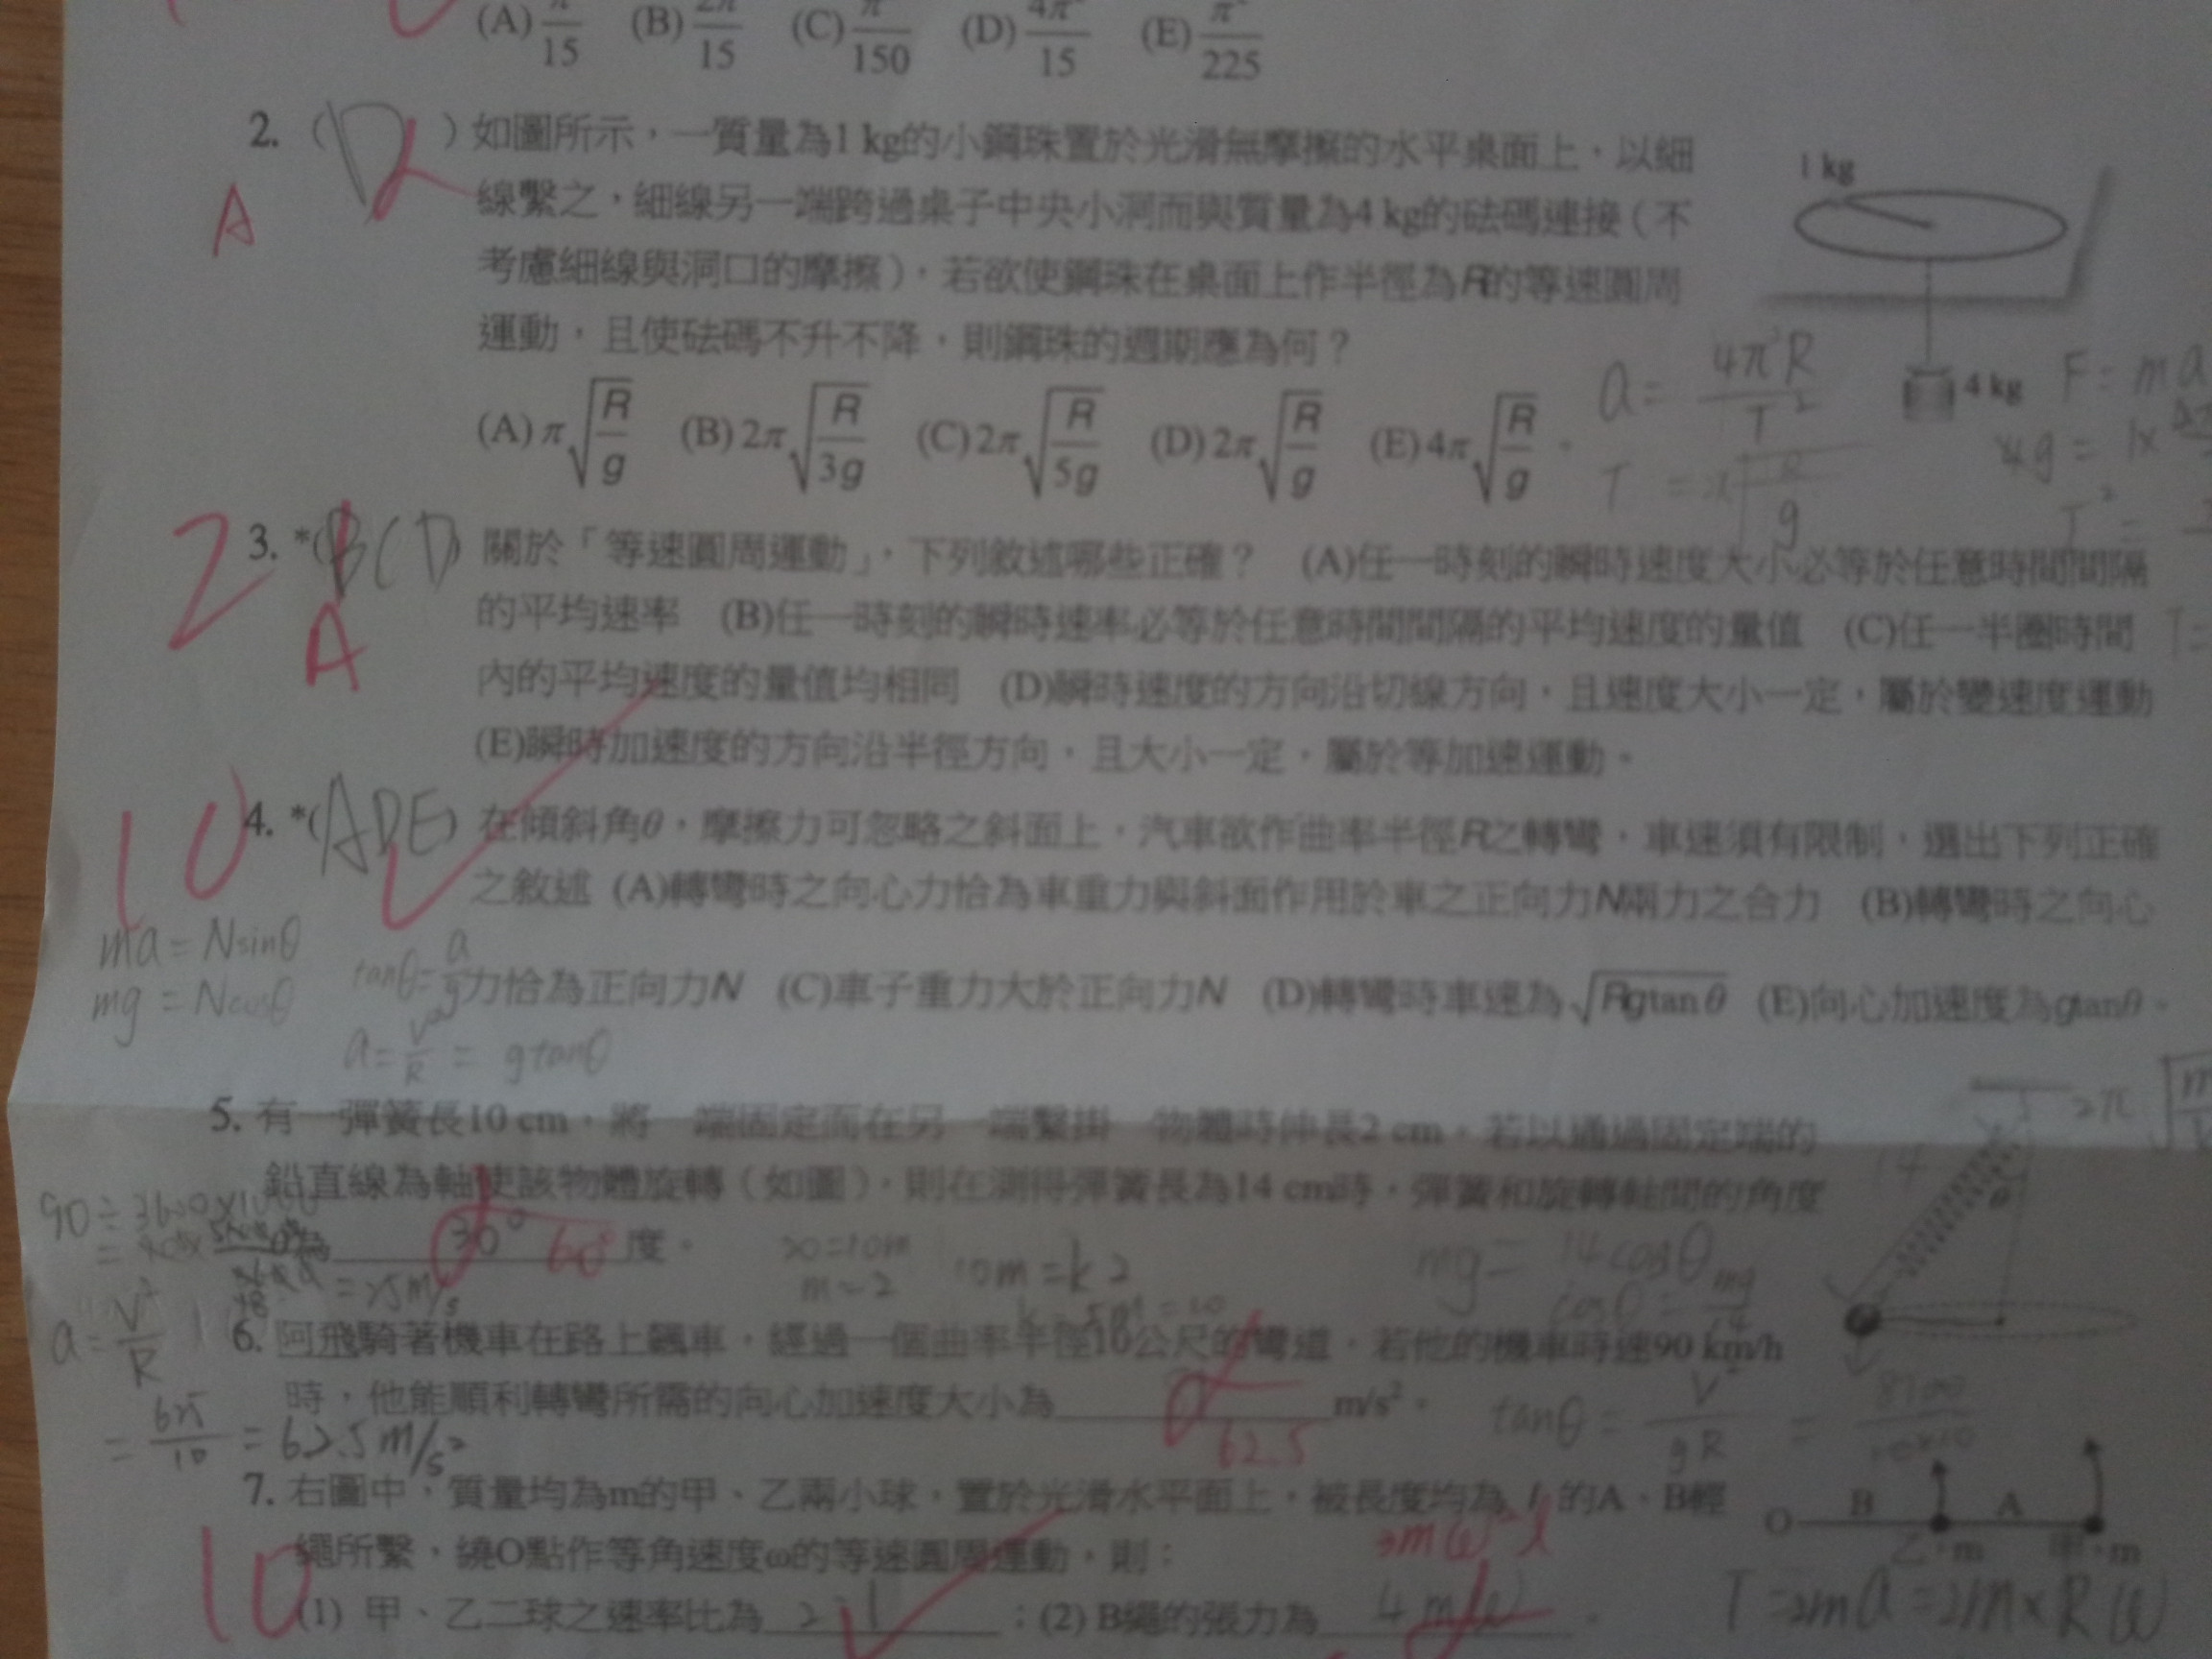 (A) π/15 (B) 2π/15 (C) /150 (D) /15 (E) /225
2. ( D ) 如圖所示，一質量為1 kg的小鋼珠置於光滑無摩擦的水平桌面上，以細
1 kg
A
線繫之，細線另一端跨過桌子中央小洞而與質量為4 kg的砝碼連接（不
考慮細線與洞口的摩擦），若欲使鋼珠在桌面上作半徑為R的等速圓周
運動，且使砝碼不升不降，則鋼珠的週期應為何？
a = 4π²R/T²
4 kg
F = ma
(A) π√(R/g) (B) 2π√(R/3g) (C) 2π√(R/5g) (D) 2π√(R/g) (E) 4π√(R/g)。
4g = 1×
T² =
2
3. *(BCD) 關於「等速圓周運動」，下列敘述哪些正確？ (A)任一時刻的瞬時速度大小必等於任意時間間隔
A
的平均速率 (B)任一時刻的瞬時速率必等於任意時間間隔的平均速度的量值 (C)任一半圈時間
T=
內的平均速度的量值均相同 (D)瞬時速度的方向沿切線方向，且速度大小一定，屬於變速度運動
(E)瞬時加速度的方向沿半徑方向，且大小一定，屬於等加速運動。
10
4. *(ADE) 在傾斜角θ，摩擦力可忽略之斜面上，汽車欲作曲率半徑R之轉彎，車速須有限制，選出下列正確
之敘述 (A)轉彎時之向心力恰為車重力與斜面作用於車之正向力N兩力之合力 (B)轉彎時之向心
力恰為正向力N (C)車子重力大於正向力N (D)轉彎時車速為√(Rgtanθ) (E)向心加速度為gtanθ。
ma = Nsinθ
mg = Ncosθ
tanθ = a/g
a = V²/R = gtanθ
5. 有一彈簧長10 cm，將一端固定而在另一端繫掛一物體時伸長2 cm。若以通過固定端的
鉛直線為軸使該物體旋轉（如圖），則在測得彈簧長為14 cm時，彈簧和旋轉軸間的角度
為 30° 60° 度。
2π
14
θ
10m = k2
mg = 14cosθ
cosθ = mg/14
90÷3600×1000
= 25m/s
a = V²/R
= 625/10 = 62.5 m/s²
6. 阿飛騎著機車在路上飆車，經過一個曲率半徑10公尺的彎道，若他的機車時速90 km/h
時，他能順利轉彎所需的向心加速度大小為 m/s²。
62.5
tanθ = V²/gR = 8100/10×10
7. 右圖中，質量均為m的甲、乙兩小球，置於光滑水平面上，被長度均為 l 的A、B輕
繩所繫，繞O點作等角速度ω的等速圓周運動，則：
O B A
乙，m 甲，m
10
3mω²l
(1) 甲、乙二球之速率比為 2:1 ；(2) B繩的張力為 4m 。
T = 2ma = 2m×Rω